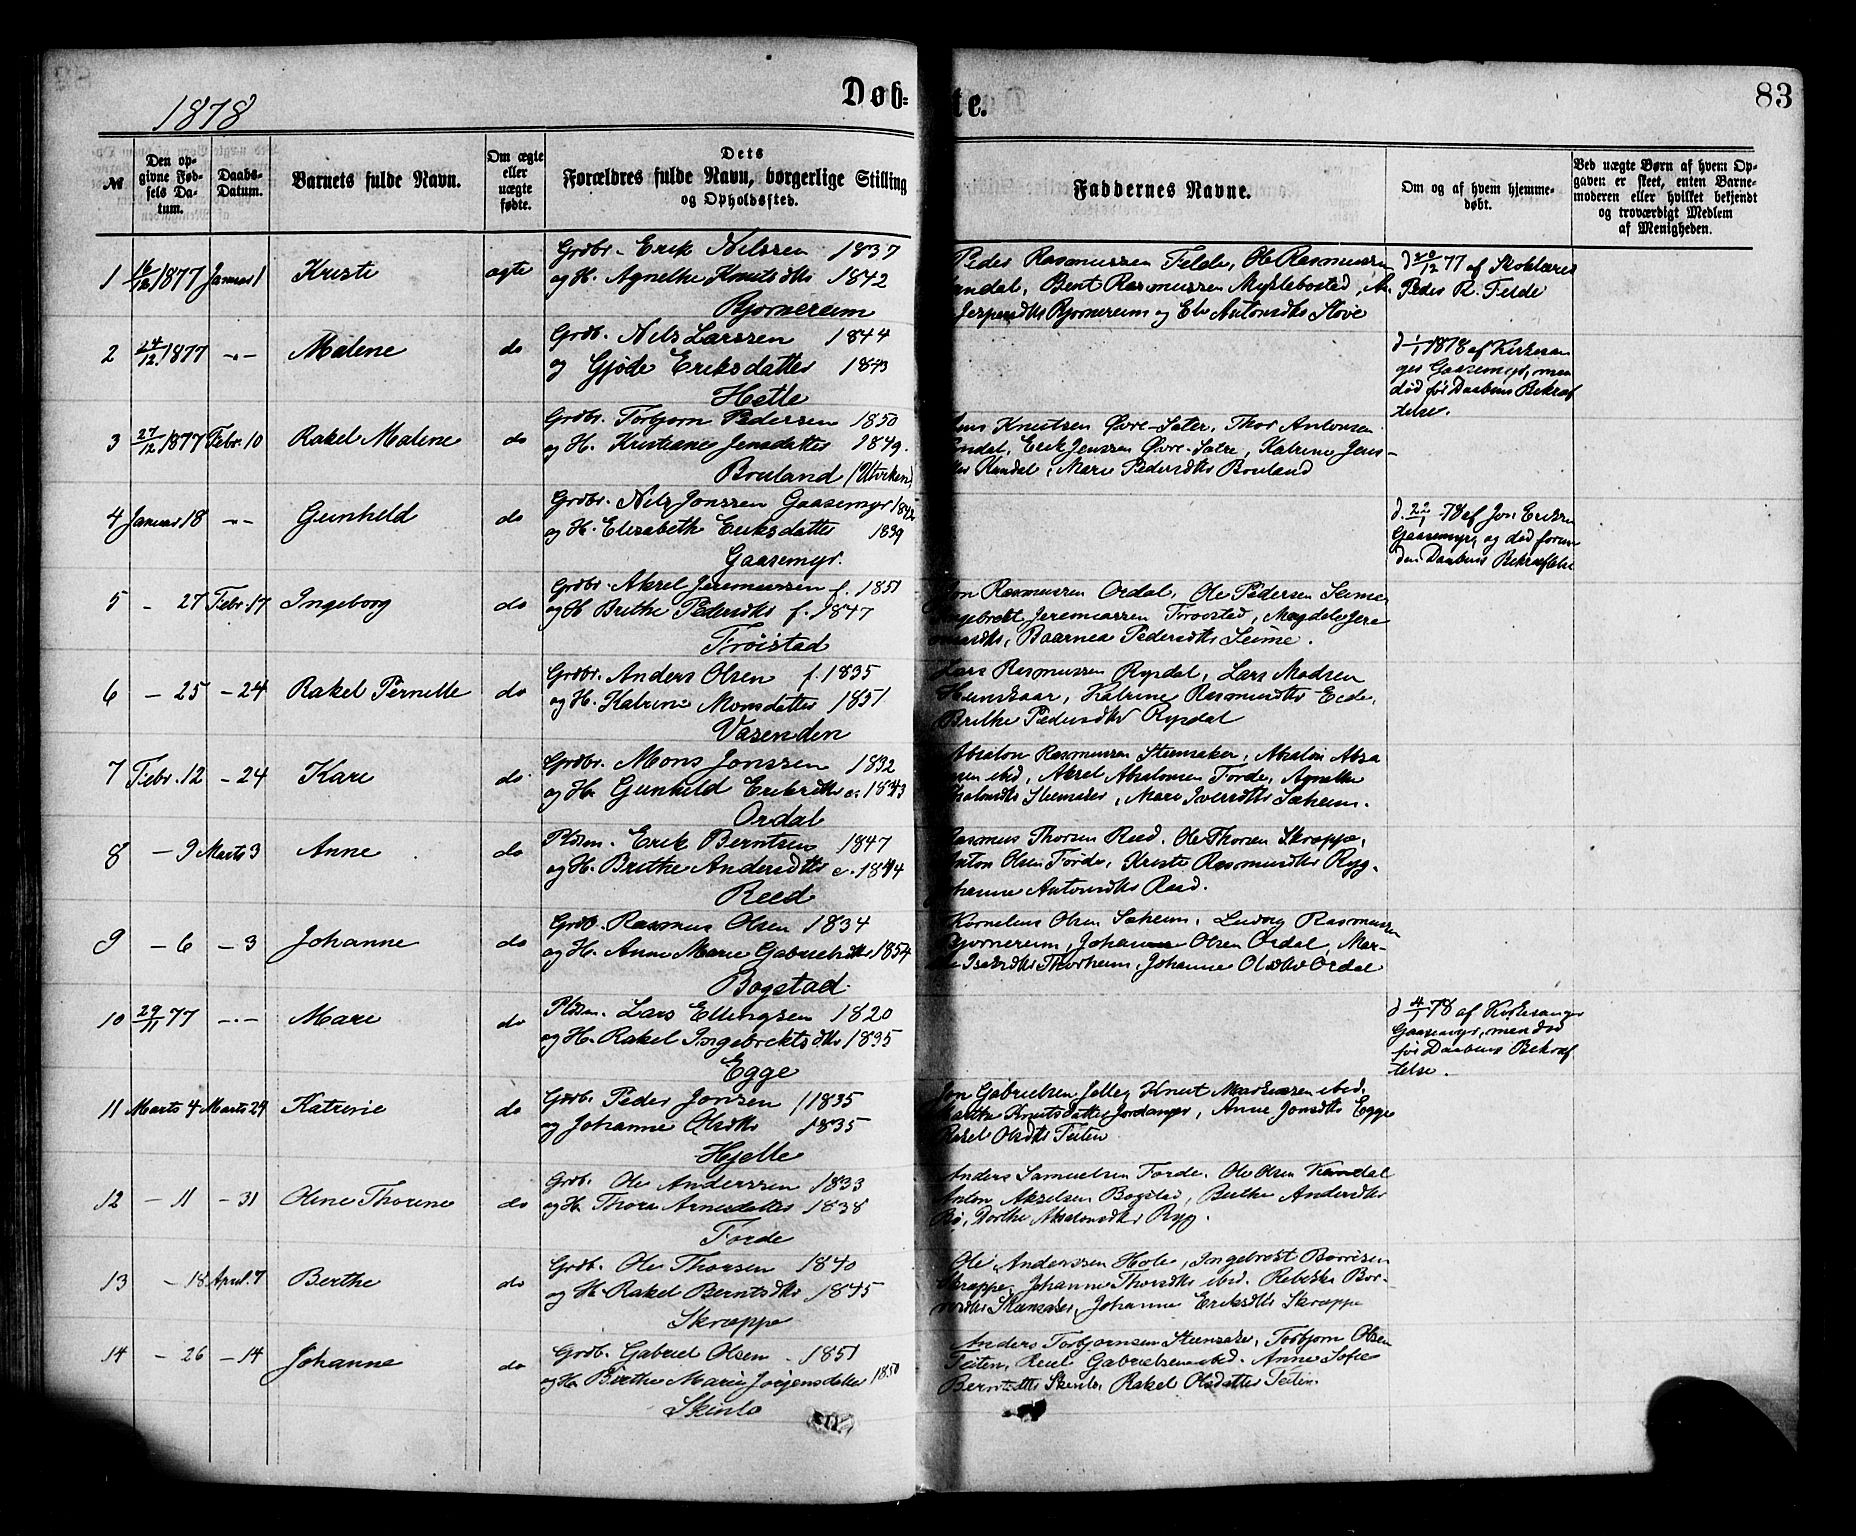 1878
Døb=
te.
83
№
Den op-
givne Fød-
sels Da-
tum.
Daabs-
Datum.
Barnets fulde Navn.
Om ægte
eller
uægte
fødte.
Dets
Forældres fulde Navn, borgerlige Stilling
og Opholdssted.
Faddernes Navne.
Om og af hvem hjemme-
døbt.
Ved uægte Børn af hvem Op-
gaven er skeet, enten Barne-
moderen eller hvilket bekjendt
og troværdigt Medlem
af Menigheden.
1 16/12 1877 Januar 1 Kristi ægte
Grdbr. Erik Nilssen 1837
og H. Agnethe Knutsdtr 1842
Bjørnereim
Peder Rasmussen Felde, Ole Rasmussen
Bent Rasmussen Myklebostad,
Jespersdtr Bjørnereim og Eli Antonsdtr Støve
d 20/12 77 af Skolelærer
Peder R. Felde
2 24/12 1877 -"- Malene do
Grdb. Nils Larssen 1844
og Gjøde Eriksdatter 1843
Hetle
d 1/1 1878 af Kirkesan
ger Gaasemyr, men
død før Daabens Bekræf
telse.
3 27/12 1877 Febr. 10 Rakel Malene do
Grdbr. Torbjørn Pedersen 1850
og H. Kristiane Jensdatter 1849.
Bruland (Utvirken)
Knutsen Øvre-Sæter, Thor Antonsen
Erik Jenssen Øvre-Sætre, Katrine Jens-
dtr Kandal, Mari Pedersdtr Bruland
4 Januar 18 -"- Gunhild do
Grdbr. Nils Jonssen Gaasemyr 1842
og H. Elisabeth Eriksdatter 1839
Gaasemyr.
d. 22/1 78 af Jon Eriksen
Gaasemyr, og død forin
den Daabens Bekræftelse
5 - 27 Febr. 17 Ingeborg do
Grdbr. Aksel Jeremiassen f. 1851
og H Brithe Pedersdtr f. 1847
Trøistad
Jon Rasmussen Ordal, Ole Pedersen Seime
Ingebrekt Jeremiassen Trøistad, Magdele Jere
miasdtr, Baarnea Pedersdtr Seime.
6 - 25 - 24 Rakel Pernille do
Grdbr. Anders Olsen f. 1835
og H. Katrine Monsdatter 1851
Vasenden
Lars Rasmussen Rypdal, Lars Madsen
Hunskaar, Katrine Rasmusdtr Eide,
Brithe Pedersdtr Rypdal
7 Febr. 12 - 24 Kari do.
Grdbr. Mons Jonssen 1832
og H. Gunhild Eriksdtr c. 1843
Ordal
Absalon Rasmussen Stensaker, Absalon Absa
lonsen ibid, Aksel Absalonsen Førde, Agnethe
Absalonsdtr Stensaker, Mari Iversdtr Sæheim.
8 - 9 Marts 3 Anne do
Pldsm. Erik Berntsen 1847
og H. Brithe Andersdtr c. 1844
Reed
Rasmus Thorsen Reed. Ole Thorsen Skræppe,
Anton Olsen Førde, Kristi Rasmusdtr Ryg.
Johanne Antonsdtr Reed.
9 - 6 - 3 Johanne do
Grdb. Rasmus Olsen 1834
og H. Anne Marie Gabrielsdtr 1854
Bogstad
Kornelius Olsen Sæheim, Ludvig Rasmussen
Bjørnereim, Johannes Olsen Ordal, Mar-
Isaksdtr Thorheim, Johanne Olsdtr Ordal
10 29/11 77 -"- Mari do
Pldsm. Lars Ellingsen 1820
og H. Rakel Ingebrektsdtr 1835
Egge
d 4/1 78 af Kirkesanger
Gaasemyr, men død
før Daabens Bekræf
telse.
11 Marts 4 Marts 24 Katrine do
Grdb. Peder Jonsen 1835
og Johanne Olsdtr 1835
Hjelle
Jon Gabrielsen Jelle, Knut Markussen ibid.
Marthe Knutsdatter Jordanger, Anne Jonsdtr Egge
Rakel Olsdtr Teiten
12 - 11 - 31 Oline Thorine do
Grdb. Ole Anderssen 1833
og H. Thora Arnesdatter 1838
Førde
Anders Samuelsen Førde. Ole Olsen Kandal
Anton Akselsen Bogstad, Brithe Andersdtr
Bø, Dorthe Absalonsdtr Ryg.
13 - 18 April 7 Berthe do
Grdb. Ole Thorsen 1840
og H. Rakel Berntsdtr 1845
Skræppe
Ole Anderssen Hole, Ingebrekt Borresen
Skræppe, Johanne Thorsdtr ibid. Rebekka Bor-
resdtr Stensaker, Johanne Eriksdtr Skræppe
14 - 26 - 14 Johanne do
Grdb. Gabriel Olsen 1851
og H. Birthe Marie Jørgensdatter 1850
Skinlo
Anders Torbjørnsen Stensaker, Torbjørn Olsen
Teiten, Gabrielsen ibid. Anne Sofie
Berntsdtr Skinlo, Rakel Olsdatter Teiten.